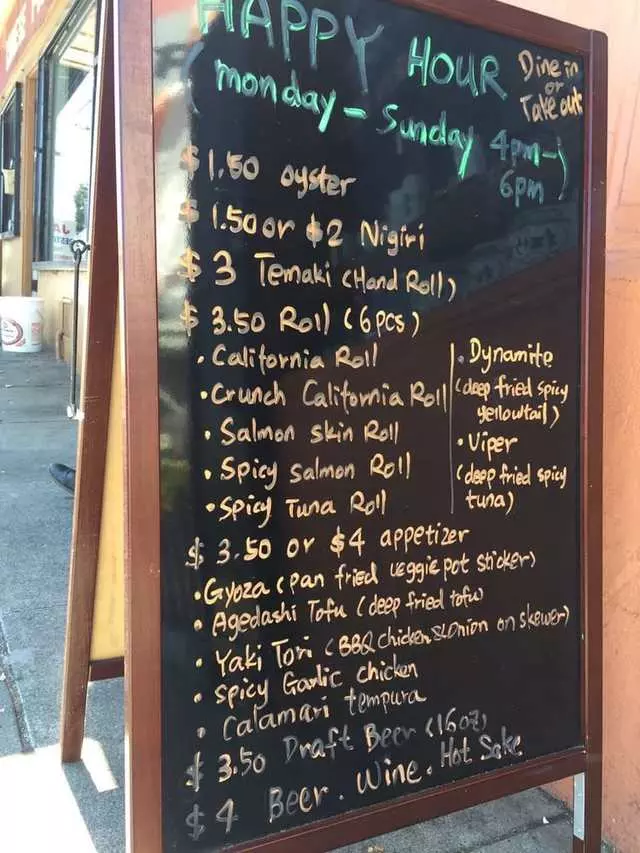 HAPPY HOUR
Dine in
or
Take out
(monday - Sunday 4pm-)
6pm
$1.50 oyster
$1.50 or $2 Nigiri
$3 Temaki (Hand Roll)
$3.50 Roll (6pcs)
• California Roll
• Crunch California Roll
• Salmon skin Roll
• Spicy salmon Roll
• Spicy Tuna Roll
• Dynamite
(deep fried spicy
yellowtail)
• Viper
(deep fried spicy
tuna)
$3.50 or $4 appetizer
• Gyoza (pan fried veggie pot sticker)
• Agedashi Tofu (deep fried tofu)
• Yaki Tori (BBQ chicken & Onion on skewer)
• Spicy Garlic chicken
• Calamari tempura
$3.50 Draft Beer (16oz)
$4 Beer. Wine. Hot Sake